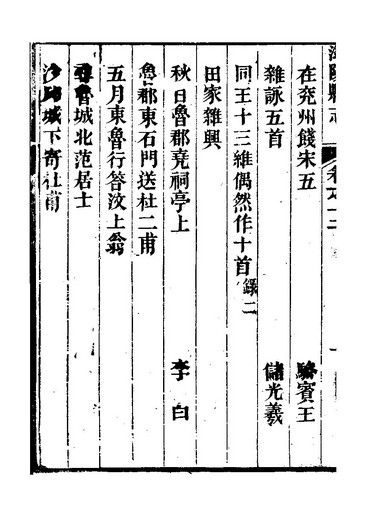 在兖州餞宋五 駱賓王
雜詠五首 儲光羲
同王十三維偶然作十首錄二
田家雜興
秋日魯郡堯祠亭上 李白
魯郡東石門送杜二甫
五月東魯行答汶上翁
尋魯城北范居士
沙邱城下寄杜甫